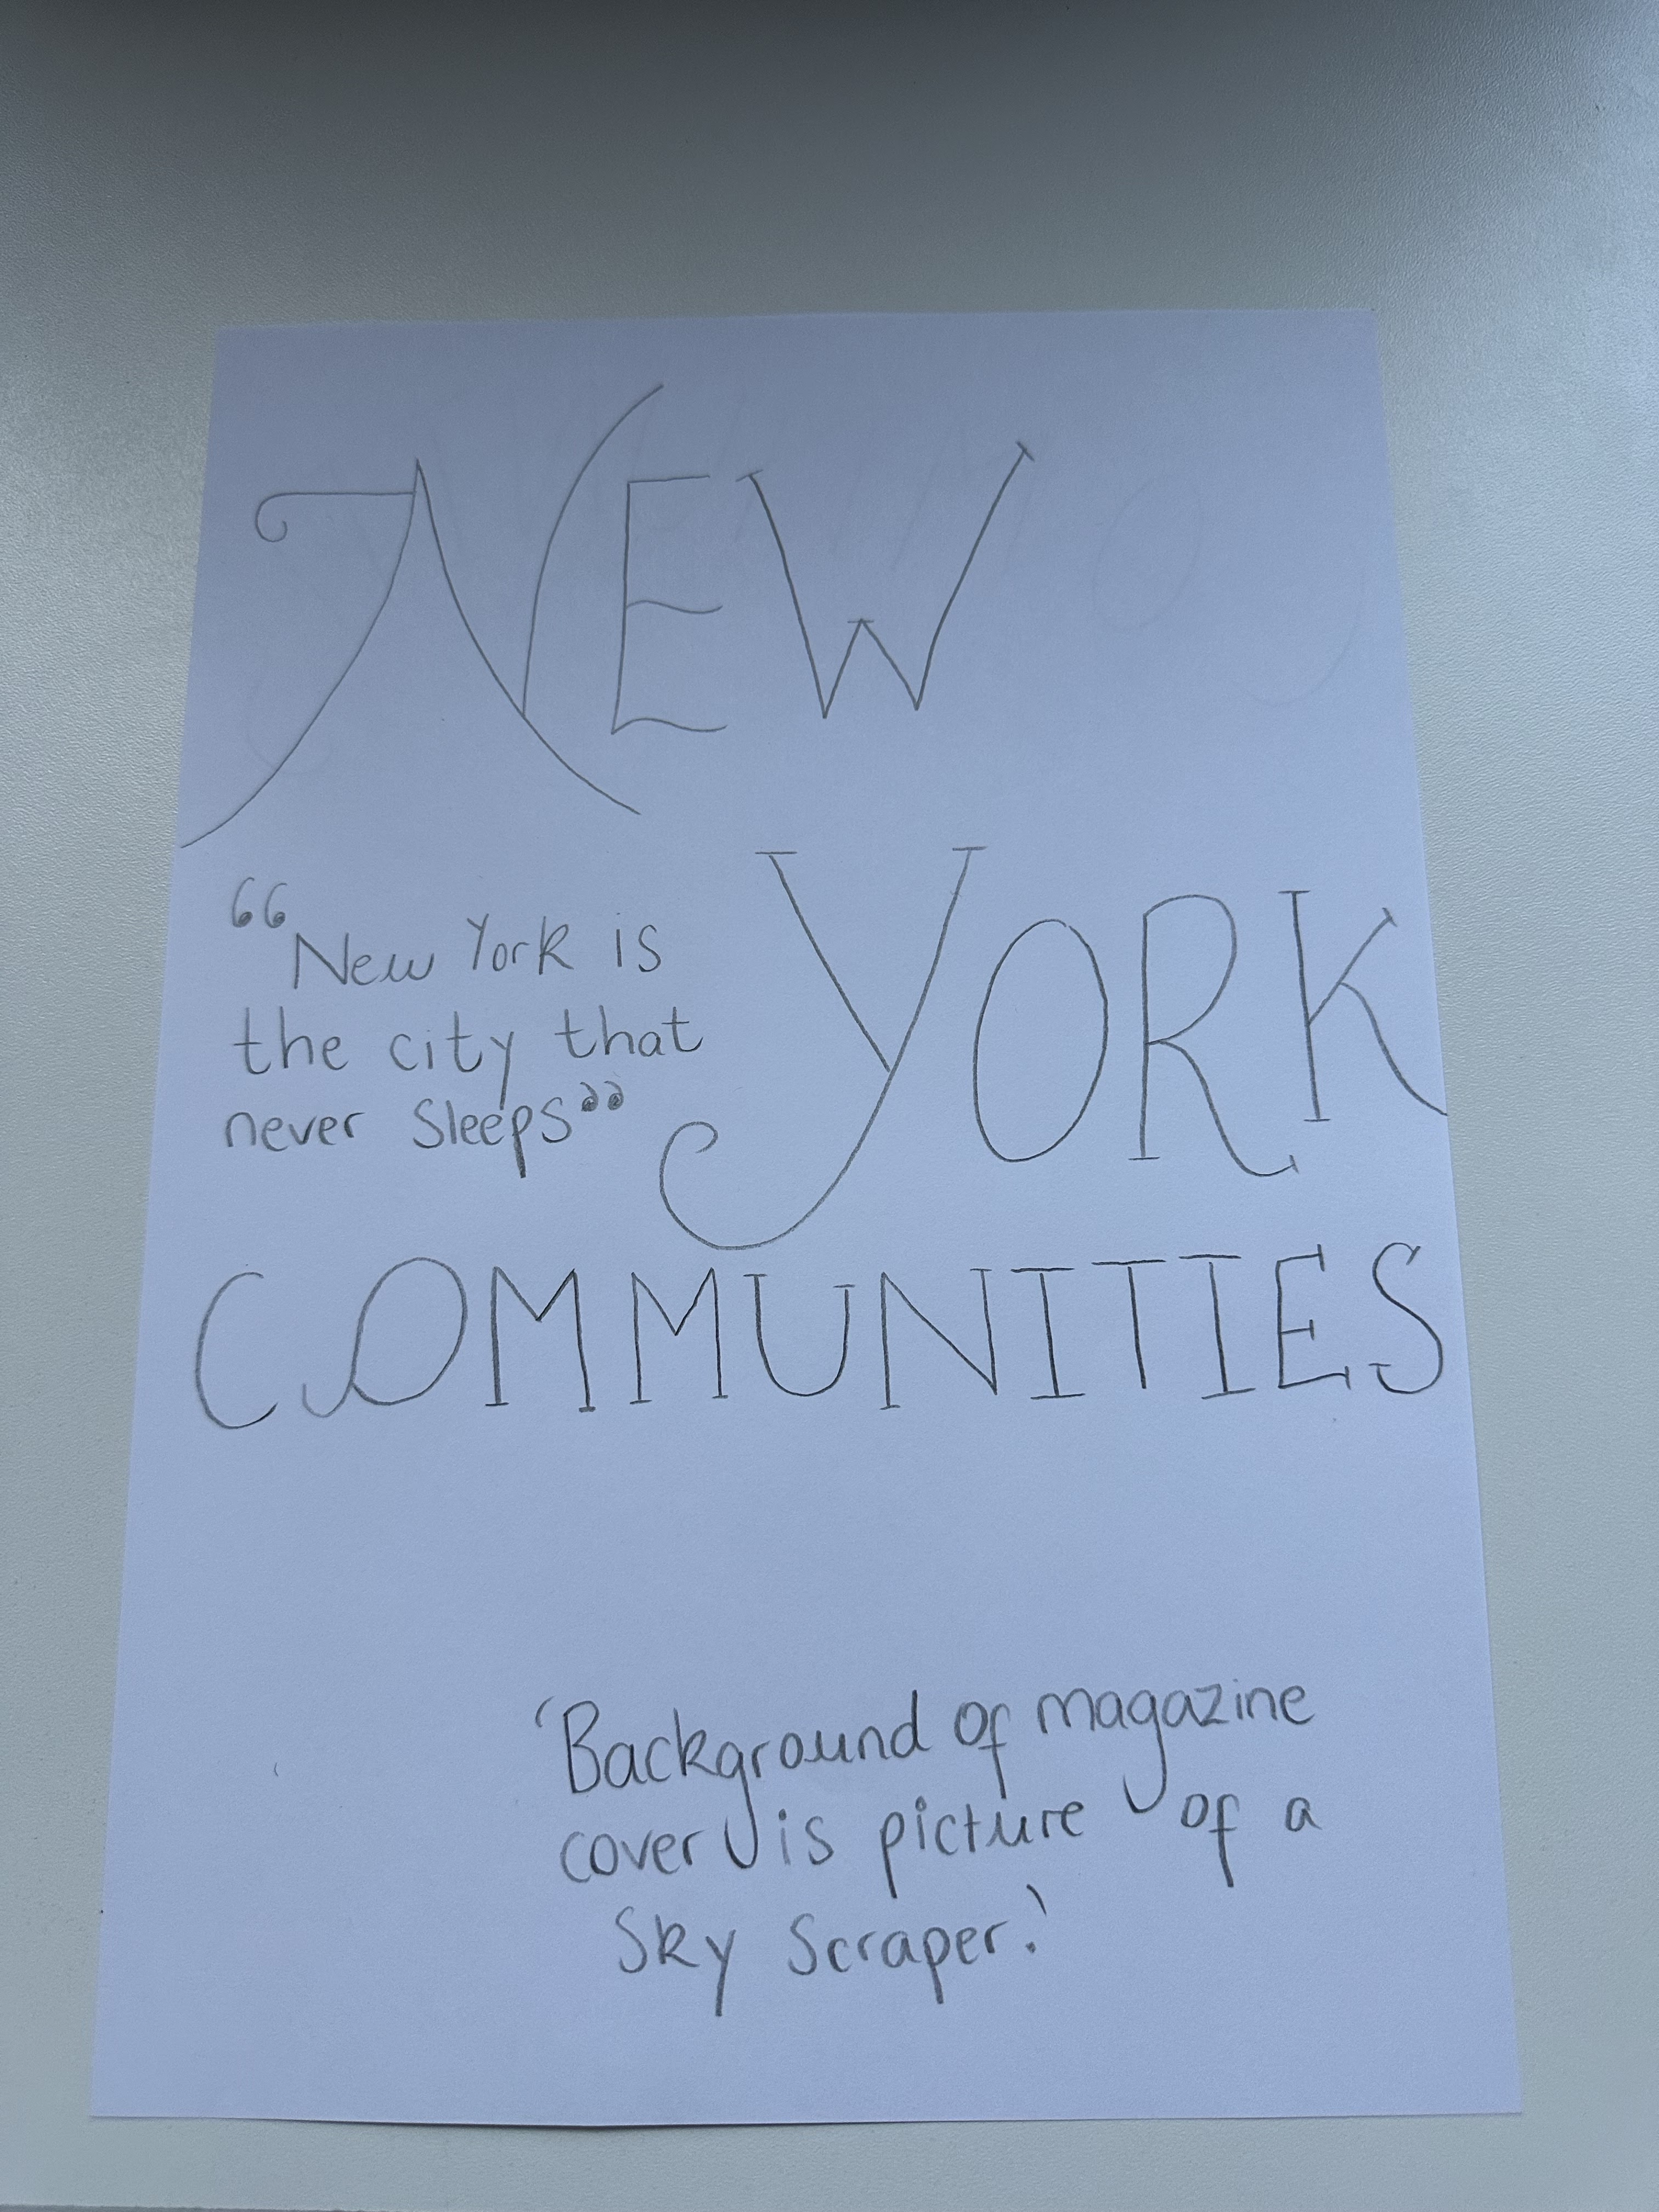 NEW
YORK
“New York is
the city that
never Sleeps”
COMMUNITIES
‘Background of magazine
cover is picture of a
Sky Scraper.’